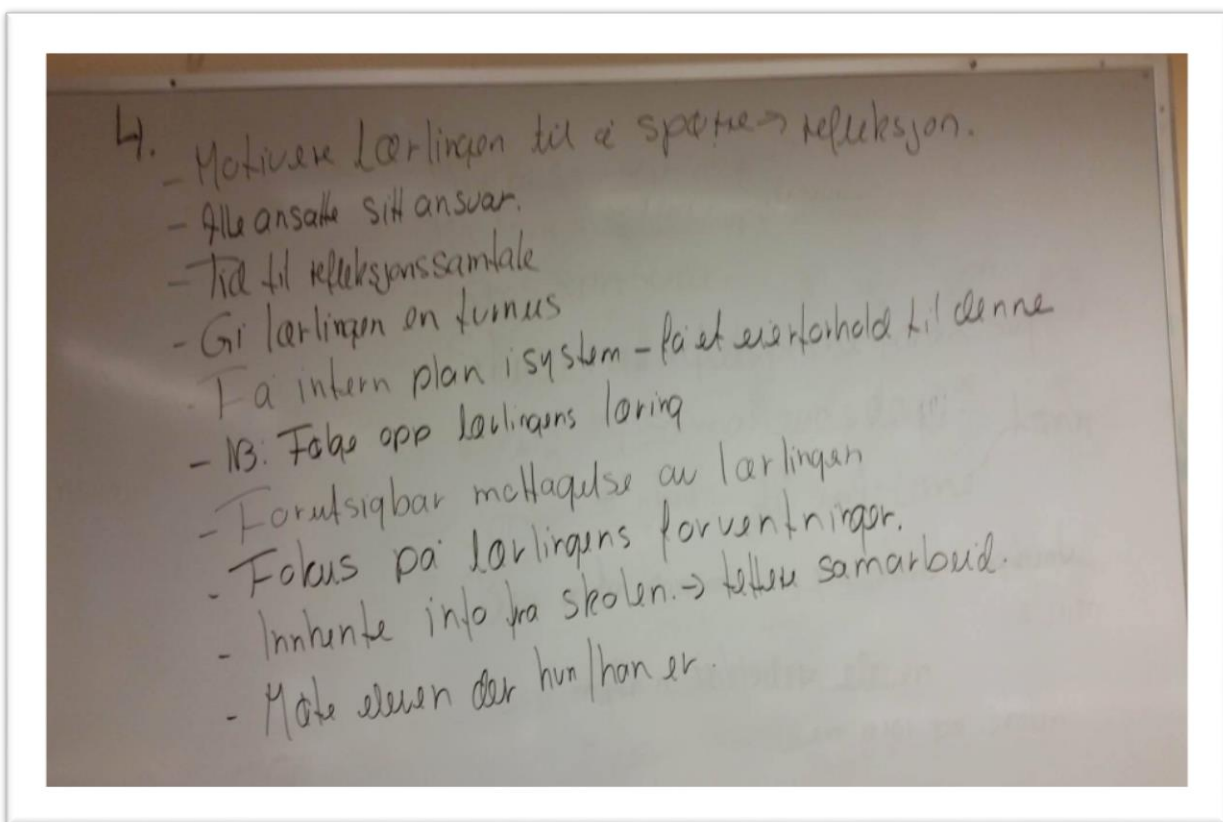 4.
- Motivere Lærlingen til å spørre → refleksjon.
- Alle ansatte sitt ansvar.
- Tid til refleksjonssamtale
- Gi lærlingen en turnus
- Få intern plan i system - få et eierforhold til denne
- NB: Følge opp lærlingens læring
- Forutsigbar mottagelse av lærlingen
- Fokus på lærlingens forventninger.
- Innhente info fra skolen. → tettere samarbeid.
- Møte eleven der hun/han er.